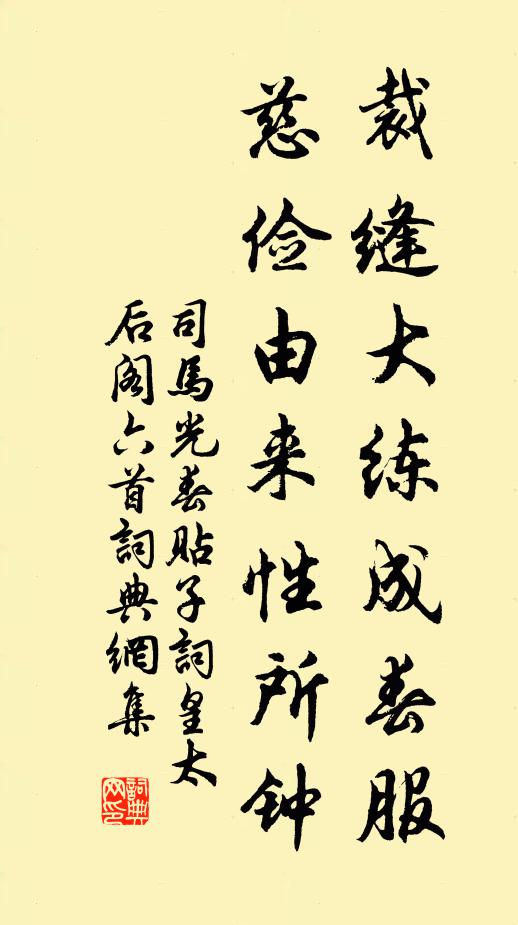 裁缝大练成春服
慈俭由来性所钟
司馬光春貼子詞皇太
后阁六首詞典網集
詞典网印